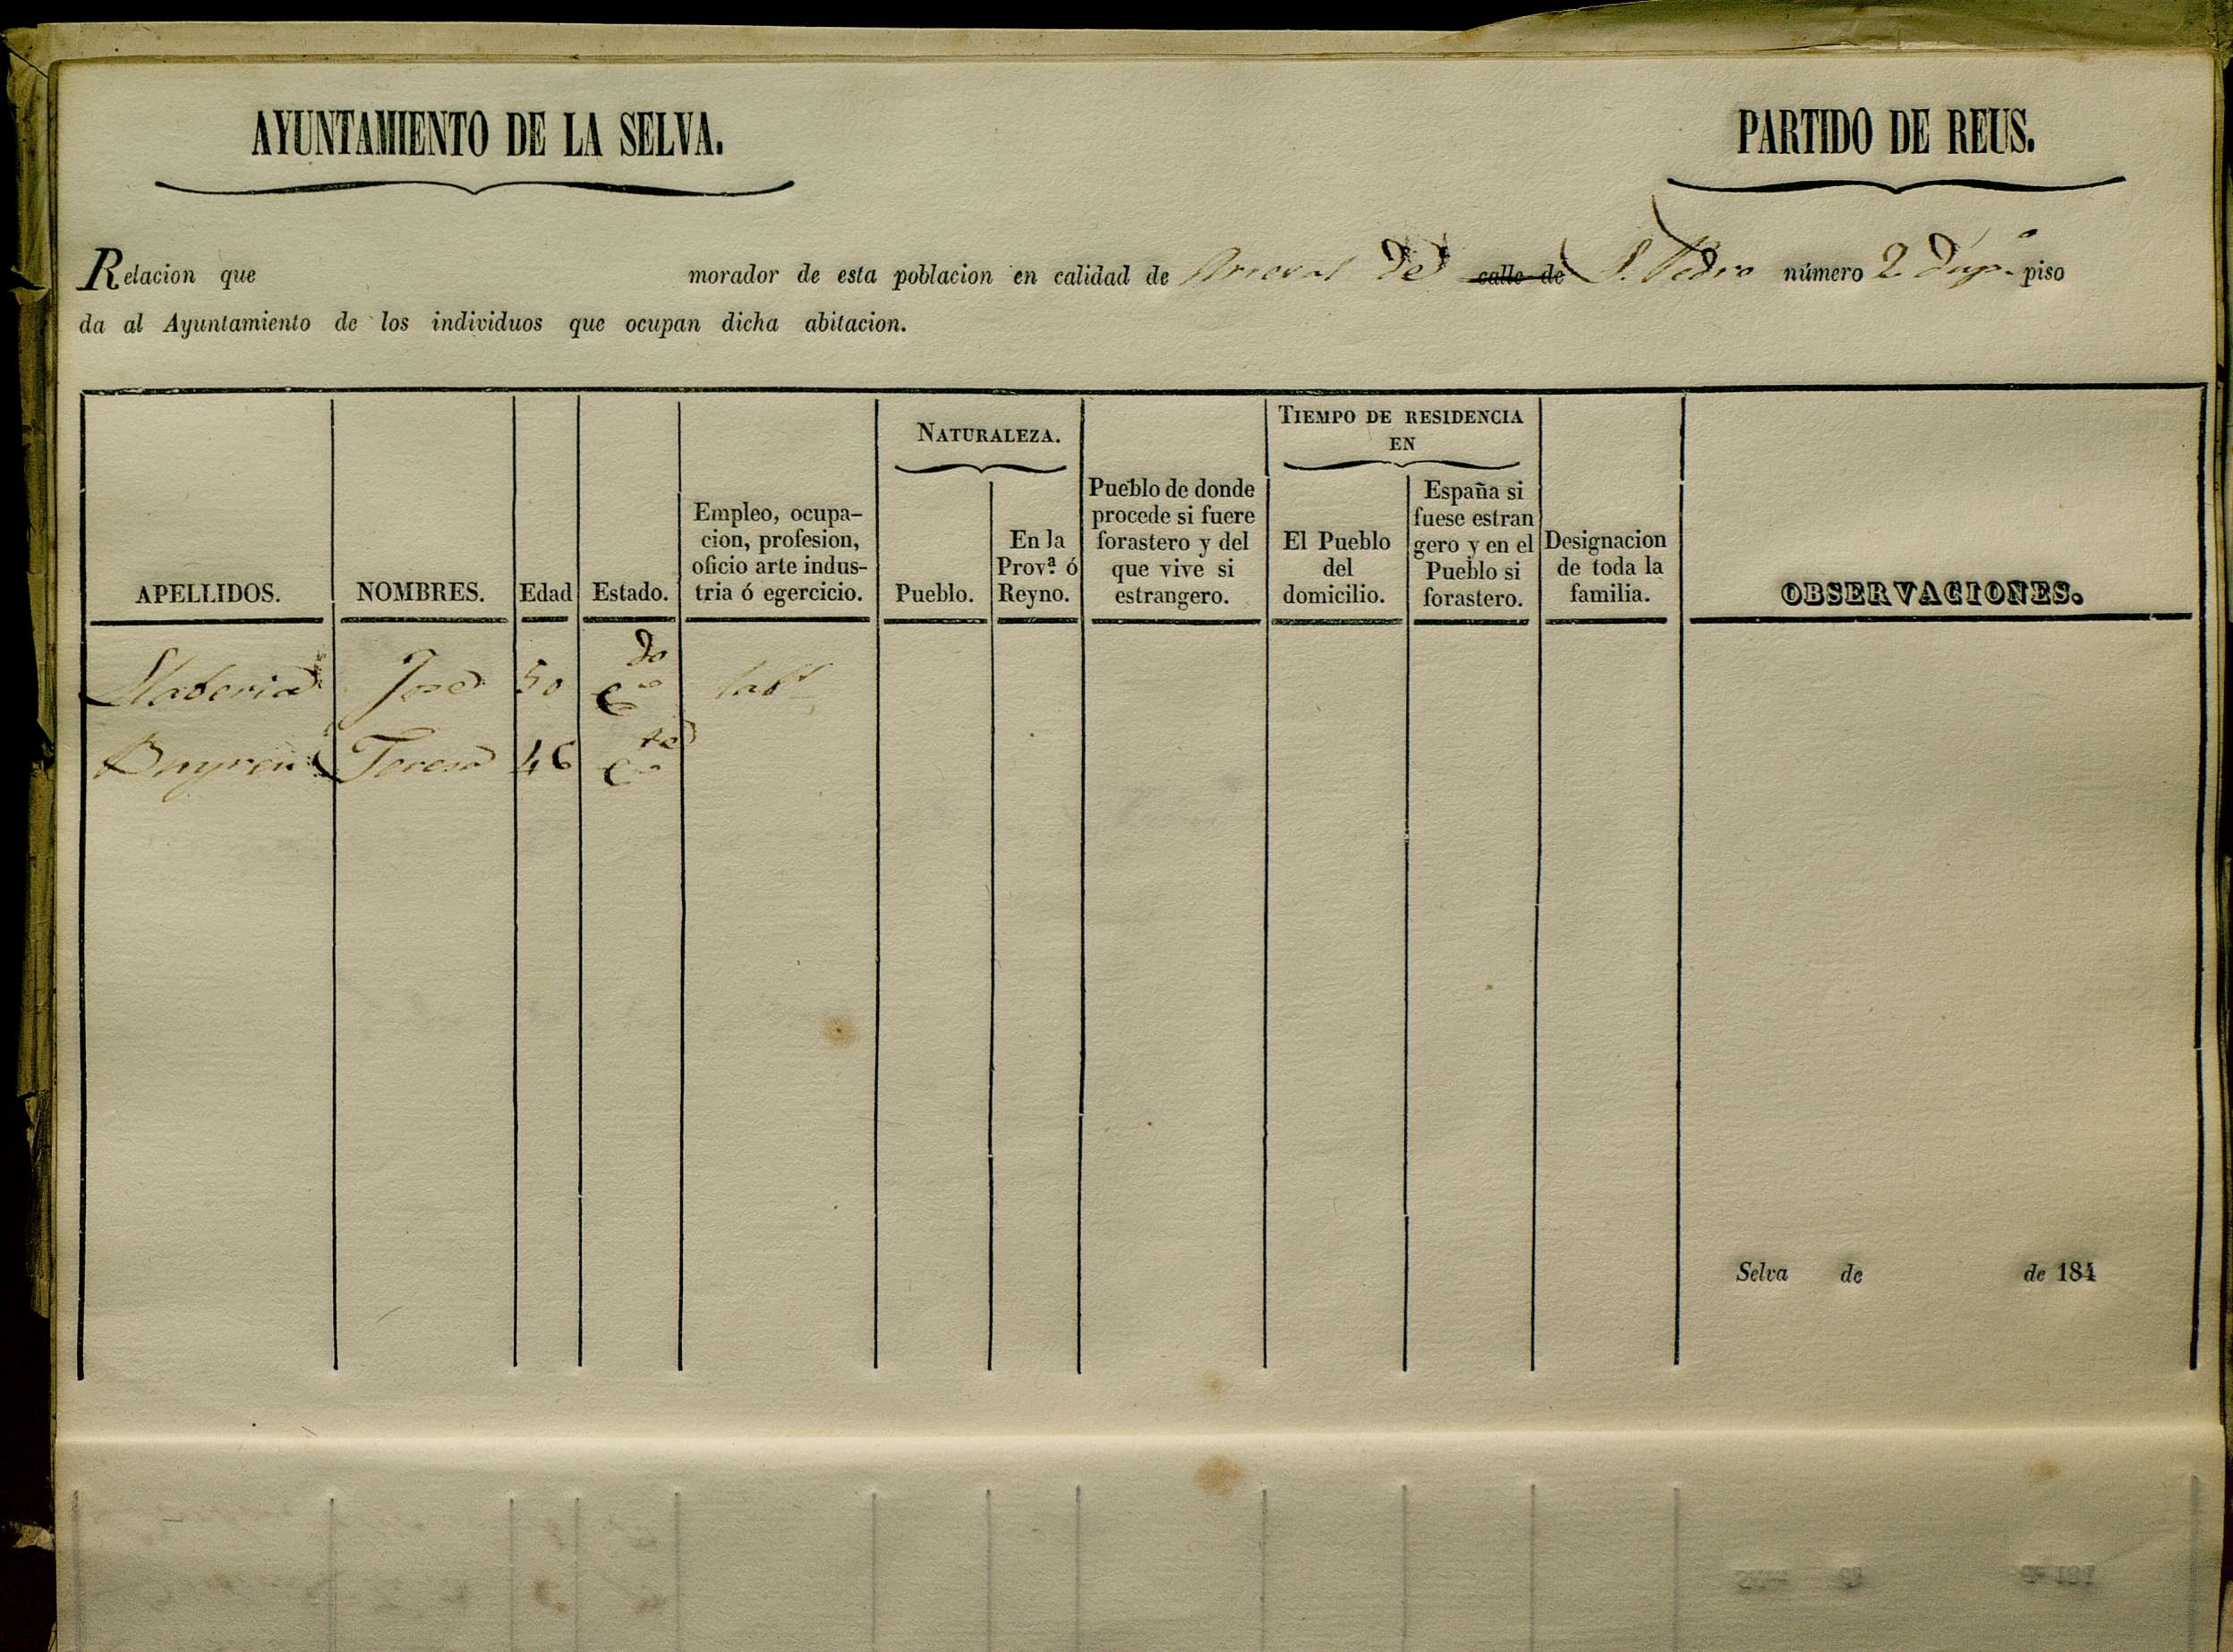 AYUNTAMIENTO DE LA SELVA.
PARTIDO DE REUS.
Relacion que morador de esta poblacion en calidad de Arraval de calle de S. Pedro número 2 dup.º piso
da al Ayuntamiento de los individuos que ocupan dicha abitacion.
APELLIDOS.
NOMBRES.
Edad
Estado.
Empleo, ocupa-
cion, profesion,
oficio arte indus-
tria ó egercicio.
NATURALEZA.
Pueblo.
En la
Prov.ª ó
Reyno.
Pueblo de donde
procede si fuere
forastero y del
que vive si
estrangero.
TIEMPO DE RESIDENCIA
EN
El Pueblo
del
domicilio.
España si
fuese estran
gero y en el
Pueblo si
forastero.
Designacion
de toda la
familia.
OBSERVACIONES.
Llaberia José 50 C.do lab.r
Teresa 46 C.da
Selva de de 184